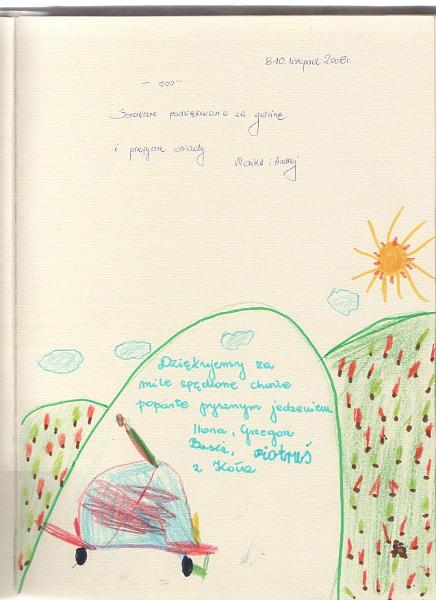 8-10. listopad 2008r.
Serdeczne podziękowania za gościnę
i przepyszne obiady
Maika i Andrzej
Dziękujemy za
miłe spędzone chwile
poparte pysznym jedzeniem
Ilona, Grzegorz
Basia, piotruś
z Koła